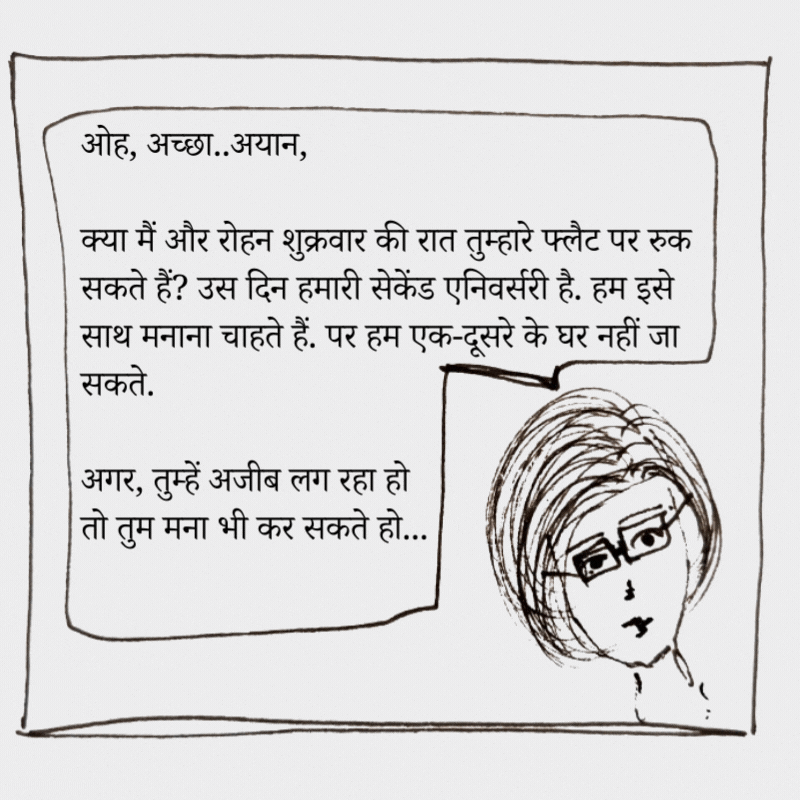 ओह, अच्छा..अयान,
क्या मैं और रोहन शुक्रवार की रात तुम्हारे फ्लैट पर रुक
सकते हैं? उस दिन हमारी सेकेंड एनिवर्सरी है. हम इसे
साथ मनाना चाहते हैं. पर हम एक-दूसरे के घर नहीं जा
सकते.
अगर, तुम्हें अजीब लग रहा हो
तो तुम मना भी कर सकते हो...